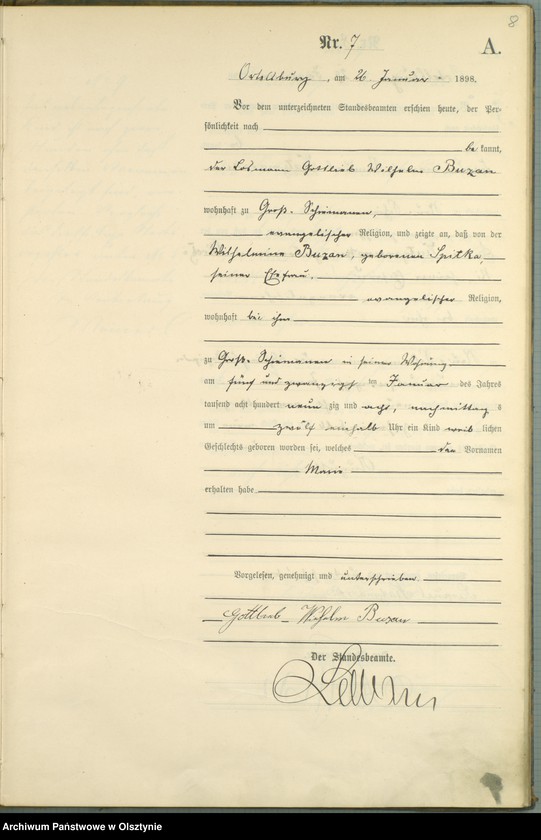 8
Nr. 7
A.
Ortelsburg, am 26. Januar 1898.
Vor dem unterzeichneten Standesbeamten erschien heute, der Per-
sönlichkeit nach
be kannt,
der Losmann Gottlieb Wilhelm Buzan
wohnhaft zu Groß-Schiemanen,
evangelischer Religion, und zeigte an, daß von der
Wilhelmine Buzan, geborenen Spitka
seiner Ehefrau.
evangelischer Religion,
wohnhaft bei ihm
zu Groß-Schiemanen in seiner Wohnung
am fünf und zwanzigsten Januar des Jahres
tausend acht hundert neun zig und acht, nachmittag s
um zwölf einhalb Uhr ein Kind weib lichen
Geschlechts geboren worden sei, welches den Vornamen
Marie
erhalten habe
Vorgelesen, genehmigt und unterschrieben.
Gottlieb Wilhelm Buzan
Der Standesbeamte.
Archiwum Państwowe w Olsztynie